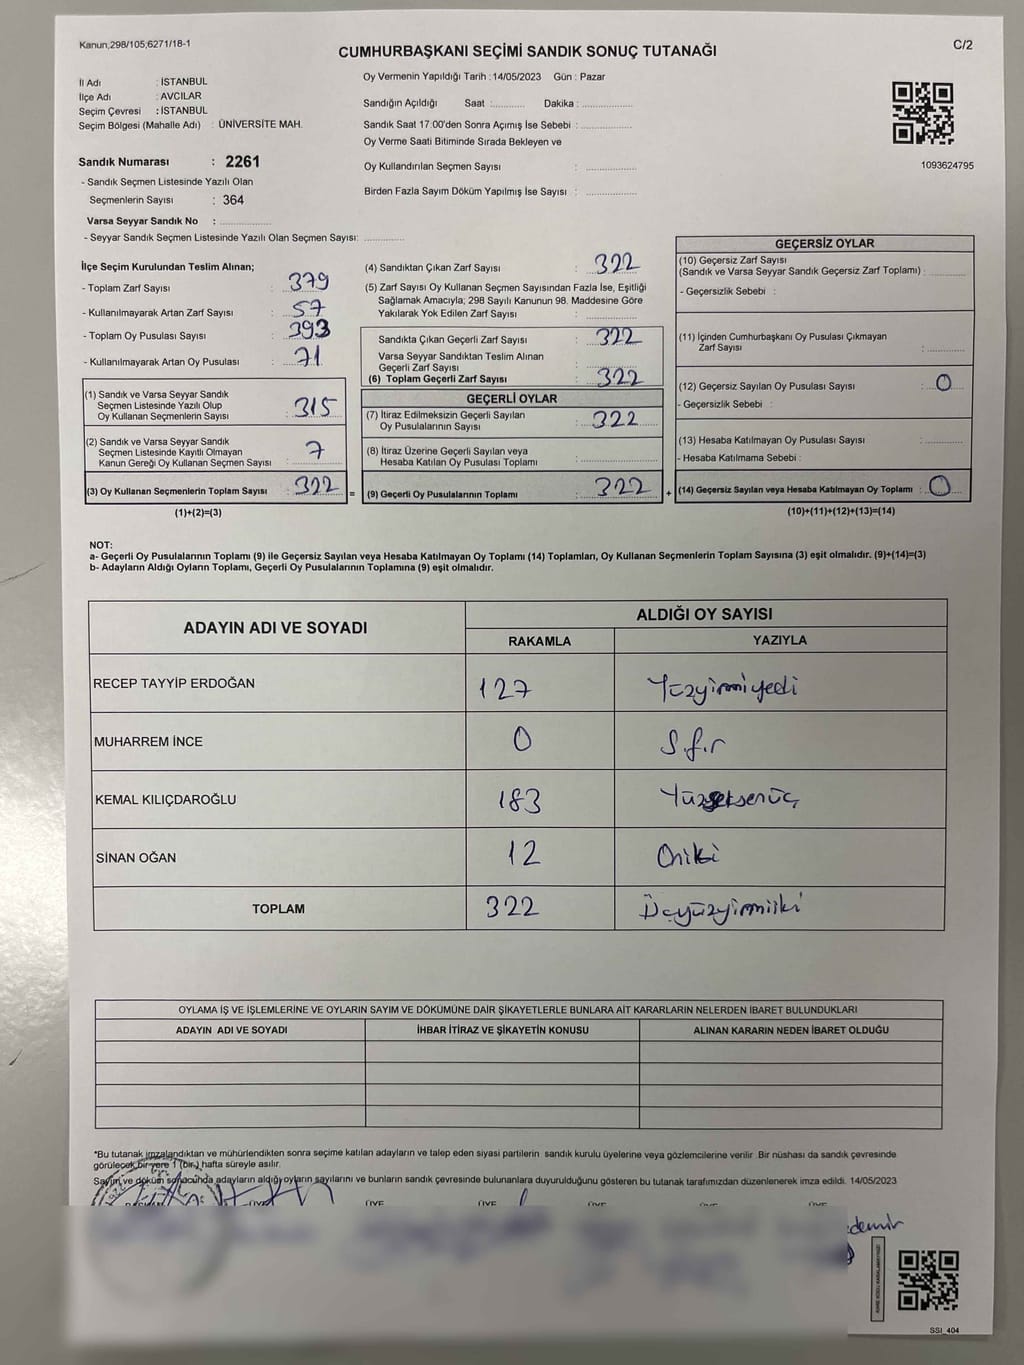 Kanun,298/105,6271/18-1
C/2
CUMHURBAŞKANI SEÇİMİ SANDIK SONUÇ TUTANAĞI
İl Adı : İSTANBUL
İlçe Adı : AVCILAR
Seçim Çevresi : İSTANBUL
Seçim Bölgesi (Mahalle Adı) : ÜNİVERSİTE MAH.
Oy Vermenin Yapıldığı Tarih : 14/05/2023 Gün : Pazar
Sandığın Açıldığı Saat :............ Dakika : ..................
Sandık Saat 17:00'den Sonra Açımış İse Sebebi : ..................
Oy Verme Saati Bitiminde Sırada Bekleyen ve
Oy Kullandırılan Seçmen Sayısı : ..................
Birden Fazla Sayım Döküm Yapılmış İse Sayısı : ..................
1093624795
Sandık Numarası : 2261
- Sandık Seçmen Listesinde Yazılı Olan
Seçmenlerin Sayısı : 364
Varsa Seyyar Sandık No : ..................
- Seyyar Sandık Seçmen Listesinde Yazılı Olan Seçmen Sayısı: ..............
İlçe Seçim Kurulundan Teslim Alınan;
- Toplam Zarf Sayısı : 379
- Kullanılmayarak Artan Zarf Sayısı : 57
- Toplam Oy Pusulası Sayısı : 393
- Kullanılmayarak Artan Oy Pusulası : 71
(1) Sandık ve Varsa Seyyar Sandık
Seçmen Listesinde Yazılı Olup
Oy Kullanan Seçmenlerin Sayısı : 315
(2) Sandık ve Varsa Seyyar Sandık
Seçmen Listesinde Kayıtlı Olmayan
Kanun Gereği Oy Kullanan Seçmen Sayısı : 7
(3) Oy Kullanan Seçmenlerin Toplam Sayısı : 322 =
(1)+(2)=(3)
(4) Sandıktan Çıkan Zarf Sayısı : 322
(5) Zarf Sayısı Oy Kullanan Seçmen Sayısından Fazla İse, Eşitliği
Sağlamak Amacıyla; 298 Sayılı Kanunun 98. Maddesine Göre
Yakılarak Yok Edilen Zarf Sayısı : ..................
Sandıkta Çıkan Geçerli Zarf Sayısı : 322
Varsa Seyyar Sandıktan Teslim Alınan
Geçerli Zarf Sayısı : ..................
(6) Toplam Geçerli Zarf Sayısı : 322
GEÇERLİ OYLAR
(7) İtiraz Edilmeksizin Geçerli Sayılan
Oy Pusulalarının Sayısı : 322
(8) İtiraz Üzerine Geçerli Sayılan veya
Hesaba Katılan Oy Pusulası Toplamı : ..................
(9) Geçerli Oy Pusulalarının Toplamı : 322 +
GEÇERSİZ OYLAR
(10) Geçersiz Zarf Sayısı
(Sandık ve Varsa Seyyar Sandık Geçersiz Zarf Toplamı) : ............
- Geçersizlik Sebebi :
(11) İçinden Cumhurbaşkanı Oy Pusulası Çıkmayan
Zarf Sayısı : ............
(12) Geçersiz Sayılan Oy Pusulası Sayısı : 0
- Geçersizlik Sebebi :
(13) Hesaba Katılmayan Oy Pusulası Sayısı : ............
- Hesaba Katılmama Sebebi :
(14) Geçersiz Sayılan veya Hesaba Katılmayan Oy Toplamı : 0
(10)+(11)+(12)+(13)=(14)
NOT:
a- Geçerli Oy Pusulalarının Toplamı (9) ile Geçersiz Sayılan veya Hesaba Katılmayan Oy Toplamı (14) Toplamları, Oy Kullanan Seçmenlerin Toplam Sayısına (3) eşit olmalıdır. (9)+(14)=(3)
b- Adayların Aldığı Oyların Toplamı, Geçerli Oy Pusulalarının Toplamına (9) eşit olmalıdır.
ADAYIN ADI VE SOYADI
ALDIĞI OY SAYISI
RAKAMLA YAZIYLA
RECEP TAYYİP ERDOĞAN 127 Yüzyirmiyedi
MUHARREM İNCE 0 Sıfır
KEMAL KILIÇDAROĞLU 183 Yüzseksenüç
SİNAN OĞAN 12 Oniki
TOPLAM 322 Üçyüzyirmiiki
OYLAMA İŞ VE İŞLEMLERİNE VE OYLARIN SAYIM VE DÖKÜMÜNE DAİR ŞİKAYETLERLE BUNLARA AİT KARARLARIN NELERDEN İBARET BULUNDUKLARI
ADAYIN ADI VE SOYADI İHBAR İTİRAZ VE ŞİKAYETİN KONUSU ALINAN KARARIN NEDEN İBARET OLDUĞU
*Bu tutanak imzalandıktan ve mühürlendikten sonra seçime katılan adayların ve talep eden siyasi partilerin sandık kurulu üyelerine veya gözlemcilerine verilir. Bir nüshası da sandık çevresinde
görülecek bir yere 1 (bir) hafta süreyle asılır.
Sayım ve döküm sonucunda adayların aldığı oyların sayılarını ve bunların sandık çevresinde bulunanlara duyurulduğunu gösteren bu tutanak tarafımızdan düzenlenerek imza edildi. 14/05/2023
BAŞKAN ÜYE ÜYE ÜYE ÜYE ÜYE ÜYE
demir
SSI_404